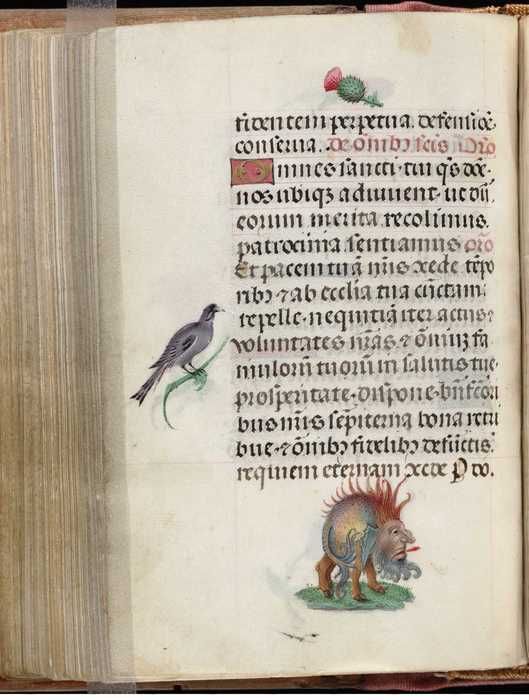 fidentem perpetua. defensiōe
conserua. de om̄ibꝫ scīs Oro
Omnes sancti tui qs̄ dn̄e
nos ubiqꝫ adiuuent. ut dū
eorum merita recolimus.
patrocinia sentiamus oro
Et pacem tuā nr̄is ꝯcede tēpo
ribꝫ ⁊ ab ecclīa tua cūctam
repelle. nequitiā iter actus ⁊
voluntates nr̄as. ⁊ om̄iuꝫ fa
mulorū tuorū in salutis tue
prosperitate. dispone. bn̄fcōri
bus nr̄is sēpiterna bona retri
bue. ⁊ om̄ibꝫ fidelibꝫ defūctis
requiem eternam ꝯcede P do.